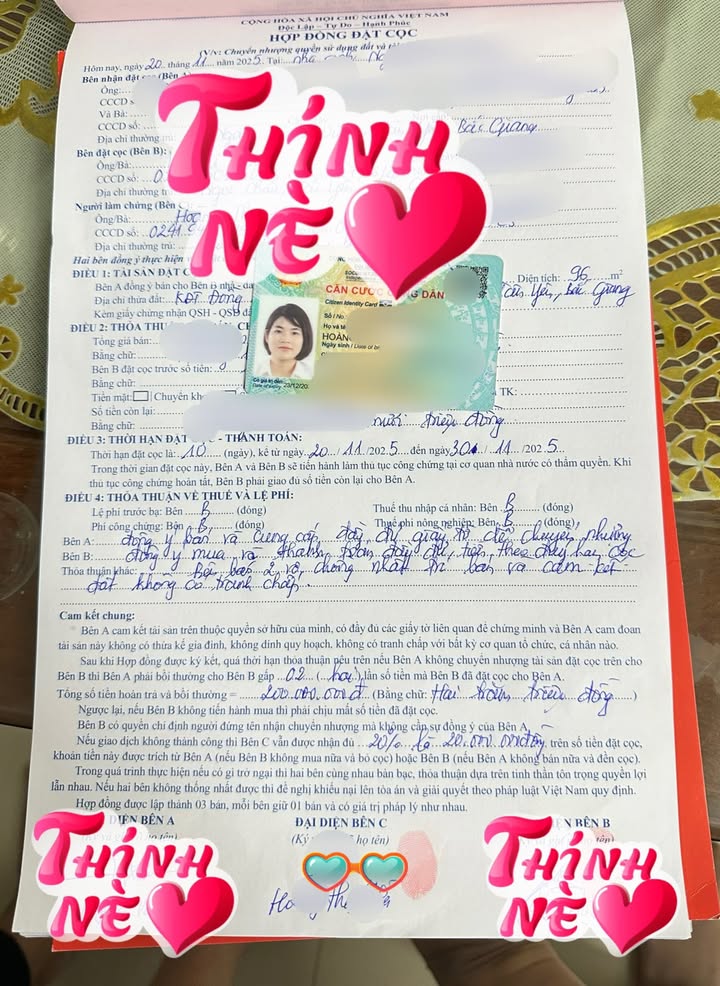 CỘNG HÒA XÃ HỘI CHỦ NGHĨA VIỆT NAM
Độc Lập - Tự Do - Hạnh Phúc
HỢP ĐỒNG ĐẶT CỌC
(V/v: Chuyển nhượng quyền sử dụng đất và
Hôm nay, ngày 20 tháng 11 năm 2025. Tại: nhà
Bên nhận đặt cọc (Bên A
Ông:
CCCD s
Và Bà:
CCCD số: Bắc Giang
Địa chỉ thường
Bên đặt cọc (Bên B):
Ông/Bà:
CCCD số: 0
Địa chỉ thường tr
Người làm chứng (Bên C
Ông/Bà:
CCCD số: 024
Địa chỉ thường trú:
THÍNH NÈ
Hai bên đồng ý thực hiện
ĐIỀU 1: TÀI SẢN ĐẶT C
Bên A đồng ý bán cho Bên B nhà - Diện tích: 96 m²
Địa chỉ thửa đất: KĐT Đông Tân Yên, Bắc Giang
Kèm giấy chứng nhận QSH - QSD
CĂN CƯỚC CÔNG DÂN
Citizen Identity Card
Số / No.:
Họ và tê
HOÀN
Ngày sinh /
Có giá trị đến: 23/12/20
Date of expiry
ĐIỀU 2: THỎA THU
Tổng giá bán:
Bằng chữ:
Bên B đặt cọc trước số tiền:
Bằng chữ:
Tiền mặt: Chuyển kh TK:
Số tiền còn lại:
Bằng chữ: mươi triệu đồng
ĐIỀU 3: THỜI HẠN ĐẶT CỌC - THANH TOÁN:
Thời hạn đặt cọc là: 10 (ngày), kể từ ngày 20 / 11 /2025 đến ngày 30 / 11 /2025.
Trong thời gian đặt cọc này, Bên A và Bên B sẽ tiến hành làm thủ tục công chứng tại cơ quan nhà nước có thẩm quyền. Khi
thủ tục công chứng hoàn tất, Bên B phải giao đủ số tiền còn lại cho Bên A.
ĐIỀU 4: THỎA THUẬN VỀ THUẾ VÀ LỆ PHÍ:
Lệ phí trước bạ: Bên B (đóng) Thuế thu nhập cá nhân: Bên B (đóng)
Phí công chứng: Bên B (đóng) Thuế phi nông nghiệp: Bên B (đóng)
Bên A: đồng ý bán và cung cấp đầy đủ giấy tờ để chuyển nhượng
Bên B: đồng ý mua và thanh toán đầy đủ tiền theo
Thỏa thuận khác: chồng nhất trí bán và cam kết
đất không có tranh chấp.
Cam kết chung:
Bên A cam kết tài sản trên thuộc quyền sở hữu của mình, có đầy đủ các giấy tờ liên quan để chứng minh và Bên A cam đoan
tài sản này không có thừa kế gia đình, không dính quy hoạch, không có tranh chấp với bất kỳ cơ quan tổ chức, cá nhân nào.
Sau khi Hợp đồng được ký kết, quá thời hạn thỏa thuận nêu trên nếu Bên A không chuyển nhượng tài sản đặt cọc trên cho
Bên B thì Bên A phải bồi thường cho Bên B gấp 02 (hai) lần số tiền mà Bên B đã đặt cọc cho Bên A.
Tổng số tiền hoàn trả và bồi thường = 200.000.000đ (Bằng chữ: Hai trăm triệu đồng )
Ngược lại, nếu Bên B không tiến hành mua thì phải chịu mất số tiền đã đặt cọc.
Bên B có quyền chỉ định người đứng tên nhận chuyển nhượng mà không cần sự đồng ý của Bên A.
Nếu giao dịch không thành công thì Bên C vẫn được nhận đủ 20% là 20.000.000 đồng, trên số tiền đặt cọc,
khoản tiền này được trích từ Bên A (nếu Bên B không mua nữa và bỏ cọc) hoặc Bên B (nếu Bên A không bán nữa và đền cọc).
Trong quá trình thực hiện nếu có gì trở ngại thì hai bên cùng nhau bàn bạc, thỏa thuận dựa trên tinh thần tôn trọng quyền lợi
lẫn nhau. Nếu hai bên không thống nhất được thì đề nghị khiếu nại lên tòa án và giải quyết theo pháp luật Việt Nam quy định.
Hợp đồng được lập thành 03 bản, mỗi bên giữ 01 bản và có giá trị pháp lý như nhau.
DIỆN BÊN A ĐẠI DIỆN BÊN C ỆN BÊN B
(Ký họ tên)
THÍNH NÈ
THÍNH NÈ